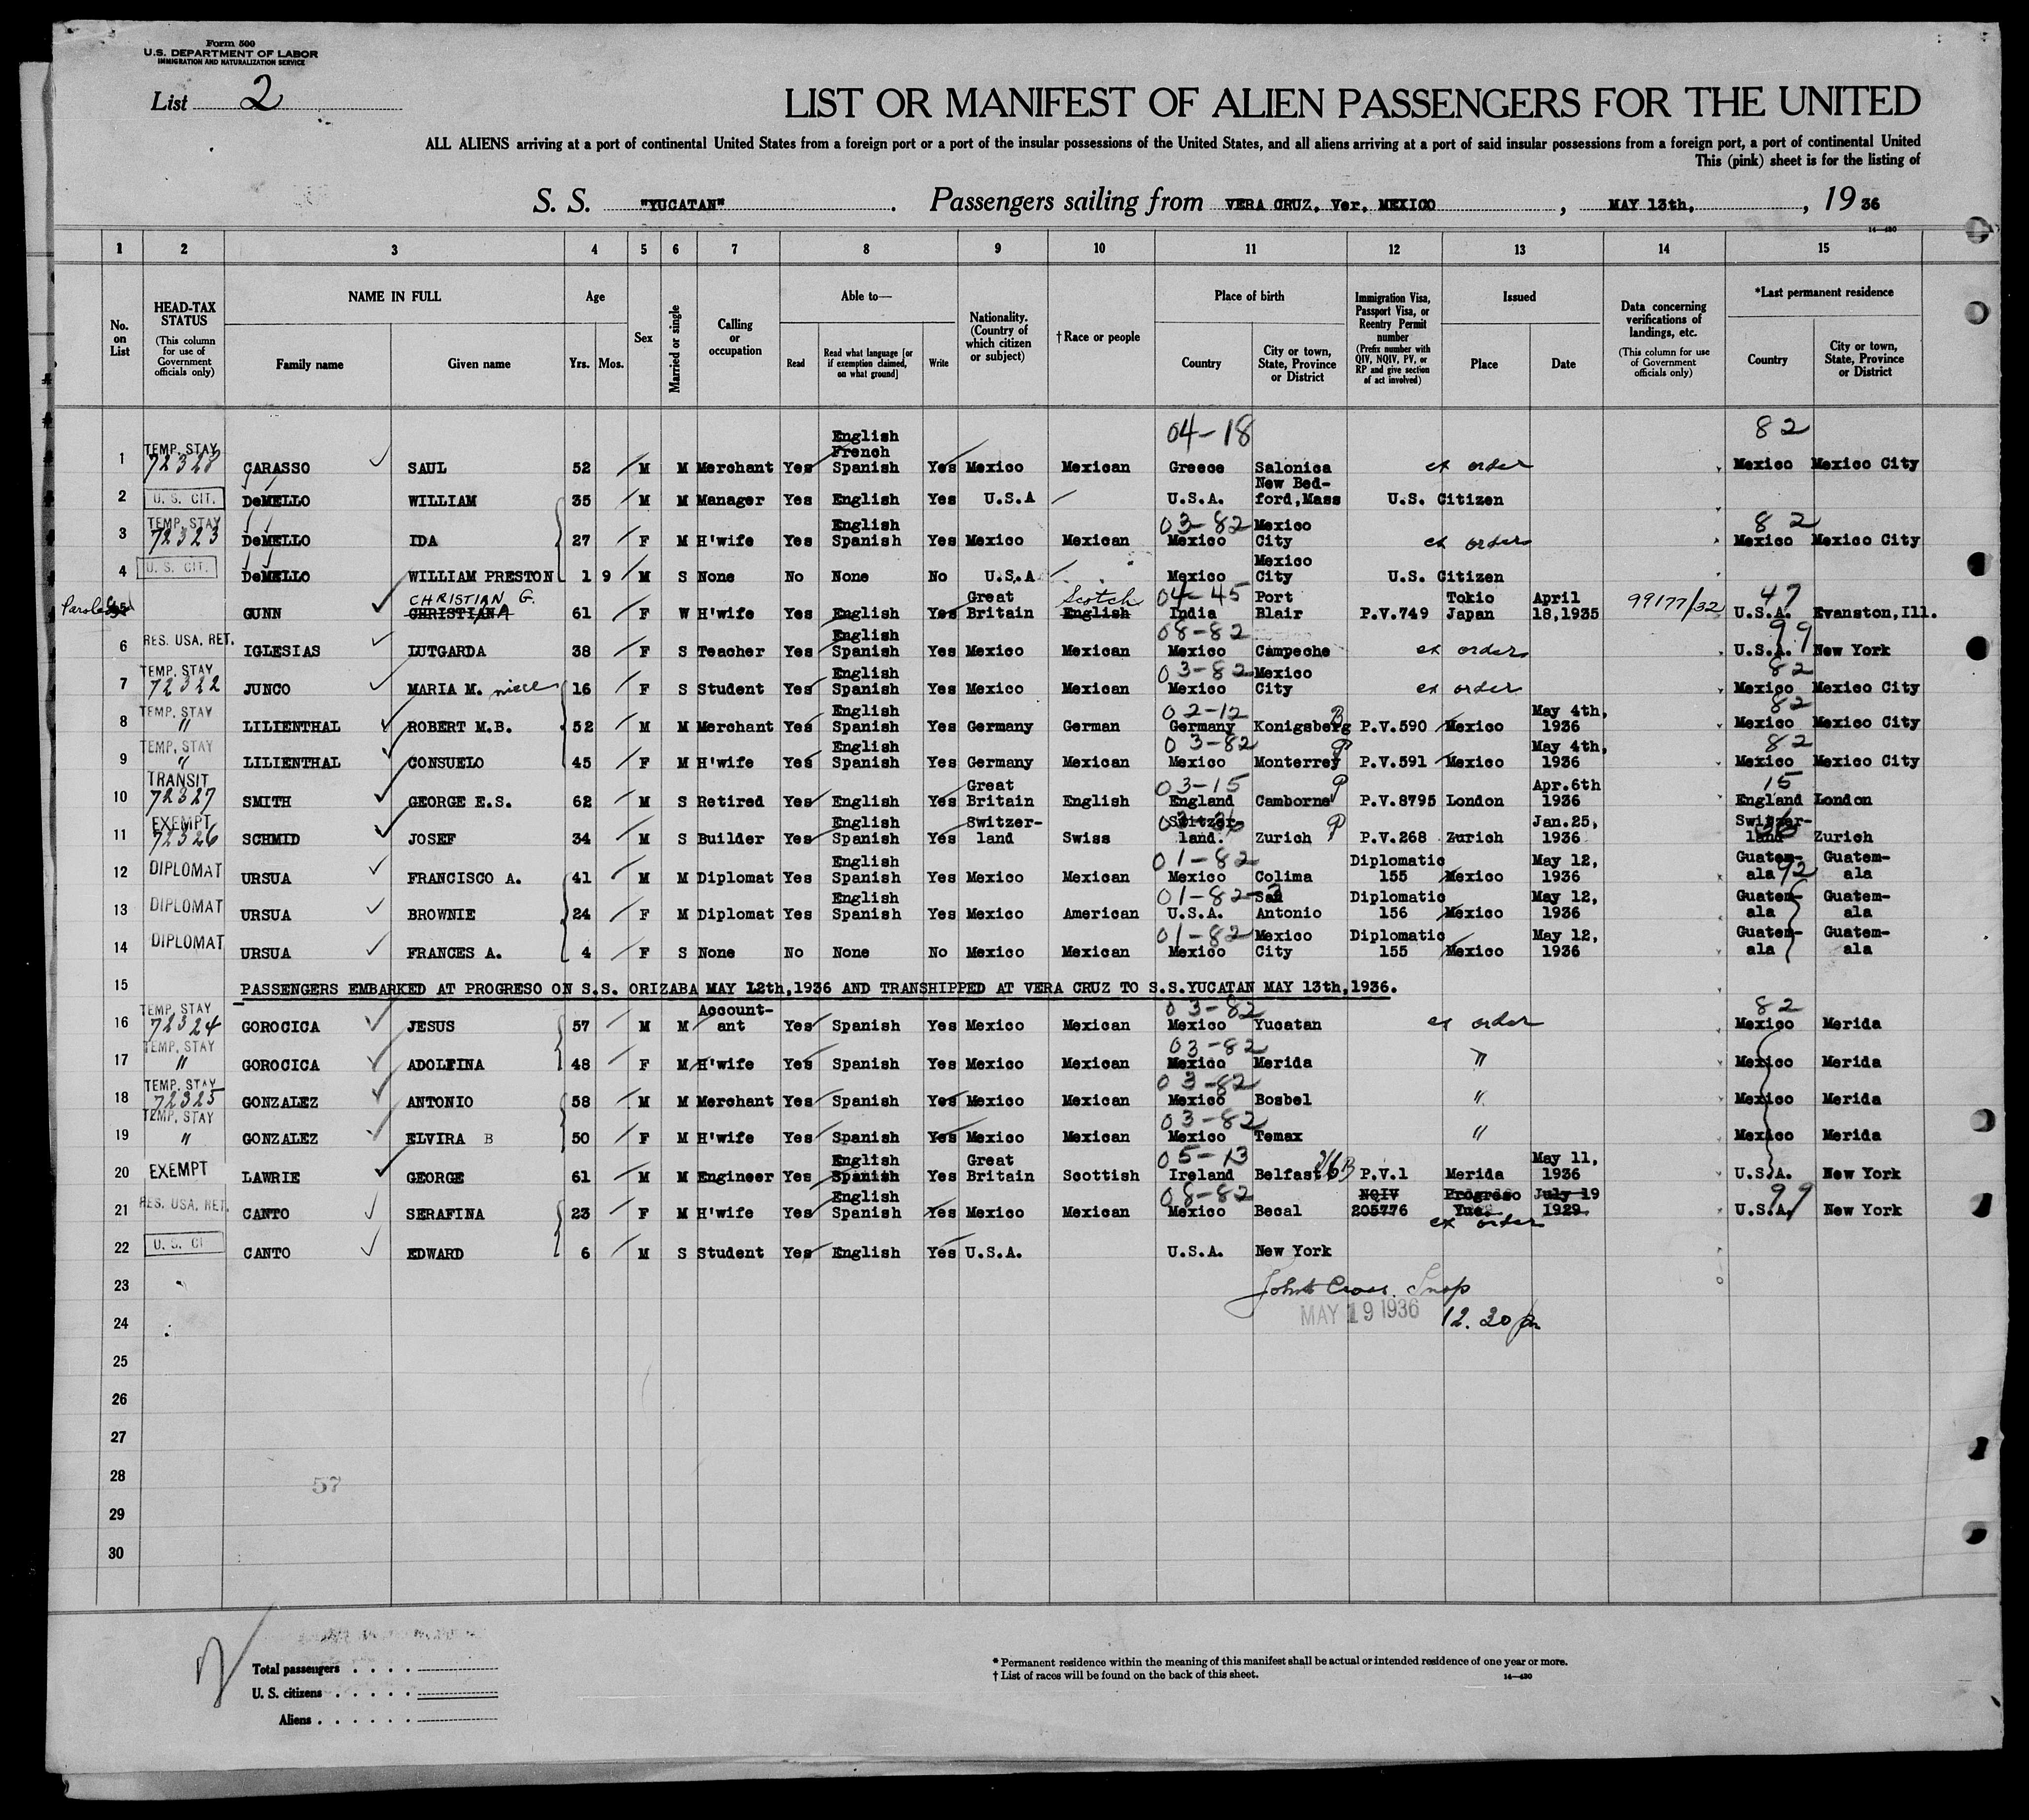 Form 500
U.S. DEPARTMENT OF LABOR
IMMIGRATION AND NATURALIZATION SERVICE
List 2
LIST OR MANIFEST OF ALIEN PASSENGERS FOR THE UNITED
ALL ALIENS arriving at a port of continental United States from a foreign port or a port of the insular possessions of the United States, and all aliens arriving at a port of said insular possessions from a foreign port, a port of continental United
This (pink) sheet is for the listing of
S. S. "YUCATAN". Passengers sailing from VERA CRUZ, Ver, MEXICO, MAY 13th, 1936
14—430
1 2 3 4 5 6 7 8 9 10 11 12 13 14 15
No. on List
HEAD-TAX STATUS (This column for use of Government officials only)
NAME IN FULL Family name Given name
Age Yrs. Mos.
Sex
Married or single
Calling or occupation
Able to— Read Read what language [or if exemption claimed, on what ground] Write
Nationality. (Country of which citizen or subject)
†Race or people
Place of birth Country City or town, State, Province or District
Immigration Visa, Passport Visa, or Reentry Permit number (Prefix number with QIV, NQIV, PV, or RP and give section of act involved)
Issued Place Date
Data concerning verifications of landings, etc. (This column for use of Government officials only)
*Last permanent residence Country City or town, State, Province or District
1 TEMP. STAY 72328 CARASSO SAUL 52 M M Merchant Yes English French Spanish Yes Mexico Mexican 04-18 Greece Salonica ex order 82 Mexico Mexico City
2 U. S. CIT. DeMELLO WILLIAM 35 M M Manager Yes English Yes U.S.A U.S.A. New Bedford, Mass U.S. Citizen
3 TEMP. STAY 72323 DeMELLO IDA 27 F M H'wife Yes English Spanish Yes Mexico Mexican 03-82 Mexico Mexico City ex order 82 Mexico Mexico City
4 U. S. CIT. DeMELLO WILLIAM PRESTON 1 9 M S None No None No U.S.A Mexico Mexico City U.S. Citizen
Paroled 5 GUNN CHRISTIAN G. CHRISTIANA 61 F W H'wife Yes English Yes Great Britain Scotch English 04-45 India Port Blair P.V.749 Tokio Japan April 18,1935 99177/32 47 U.S.A. Evanston, Ill.
6 RES. USA, RET. IGLESIAS LUTGARDA 38 F S Teacher Yes English Spanish Yes Mexico Mexican 08-82 Mexico Campeche ex order 99 U.S.A. New York
7 TEMP. STAY 72322 JUNCO MARIA M. niece 16 F S Student Yes English Spanish Yes Mexico Mexican 03-82 Mexico Mexico City ex order 82 Mexico Mexico City
8 TEMP. STAY " LILIENTHAL ROBERT M.B. 52 M M Merchant Yes English Spanish Yes Germany German 02-12 Germany Konigsberg P.V.590 Mexico May 4th, 1936 82 Mexico Mexico City
9 TEMP. STAY " LILIENTHAL CONSUELO 45 F M H'wife Yes English Spanish Yes Germany Mexican 03-82 Mexico Monterrey P P.V.591 Mexico May 4th, 1936 82 Mexico Mexico City
10 TRANSIT 72327 SMITH GEORGE E.S. 62 M S Retired Yes English Yes Great Britain English 03-15 England Camborne P P.V.8795 London Apr.6th 1936 15 England London
11 EXEMPT 72326 SCHMID JOSEF 34 M S Builder Yes English Spanish Yes Switzerland Swiss Switzerland. Zurich P P.V.268 Zurich Jan.25, 1936 Switzerland Zurich
12 DIPLOMAT URSUA FRANCISCO A. 41 M M Diplomat Yes English Spanish Yes Mexico Mexican 01-82 Mexico Colima Diplomatic 155 Mexico May 12, 1936 Guatemala 92 Guatemala
13 DIPLOMAT URSUA BROWNIE 24 F M Diplomat Yes English Spanish Yes Mexico American 01-82 U.S.A. San Antonio Diplomatic 156 Mexico May 12, 1936 Guatemala Guatemala
14 DIPLOMAT URSUA FRANCES A. 4 F S None No None No Mexico Mexican 01-82 Mexico Mexico City Diplomatic 155 Mexico May 12, 1936 Guatemala Guatemala
15 PASSENGERS EMBARKED AT PROGRESO ON S.S. ORIZABA MAY 12th,1936 AND TRANSHIPPED AT VERA CRUZ TO S.S.YUCATAN MAY 13th,1936.
16 TEMP. STAY 72324 GOROCICA JESUS 57 M M Accountant Yes Spanish Yes Mexico Mexican 03-82 Mexico Yucatan ex order 82 Mexico Merida
17 TEMP. STAY " GOROCICA ADOLFINA 48 F M H'wife Yes Spanish Yes Mexico Mexican 03-82 Mexico Merida " Mexico Merida
18 TEMP. STAY 72325 GONZALEZ ANTONIO 58 M M Merchant Yes Spanish Yes Mexico Mexican 03-82 Mexico Bosbel " Mexico Merida
19 TEMP. STAY " GONZALEZ ELVIRA B 50 F M H'wife Yes Spanish Yes Mexico Mexican 03-82 Mexico Temax " Mexico Merida
20 EXEMPT LAWRIE GEORGE 61 M M Engineer Yes English Spanish Yes Great Britain Scottish 05-13 Ireland Belfast P.V.1 Merida May 11, 1936 U.S.A. New York
21 RES. USA, RET. CANTO SERAFINA 23 F M H'wife Yes English Spanish Yes Mexico Mexican 08-82 Mexico Becal NQIV 205776 Progreso Yuc. July 19 1929 ex order 99 U.S.A. New York
22 U. S. CI CANTO EDWARD 6 M S Student Yes English Yes U.S.A. U.S.A. New York
23 John Cross. Insp
24 MAY 19 1936 12.30 pm
25
26
27
28 57
29
30
Total passengers . . . .
U. S. citizens . . . . .
Aliens . . . . . .
* Permanent residence within the meaning of this manifest shall be actual or intended residence of one year or more.
† List of races will be found on the back of this sheet.
14—430